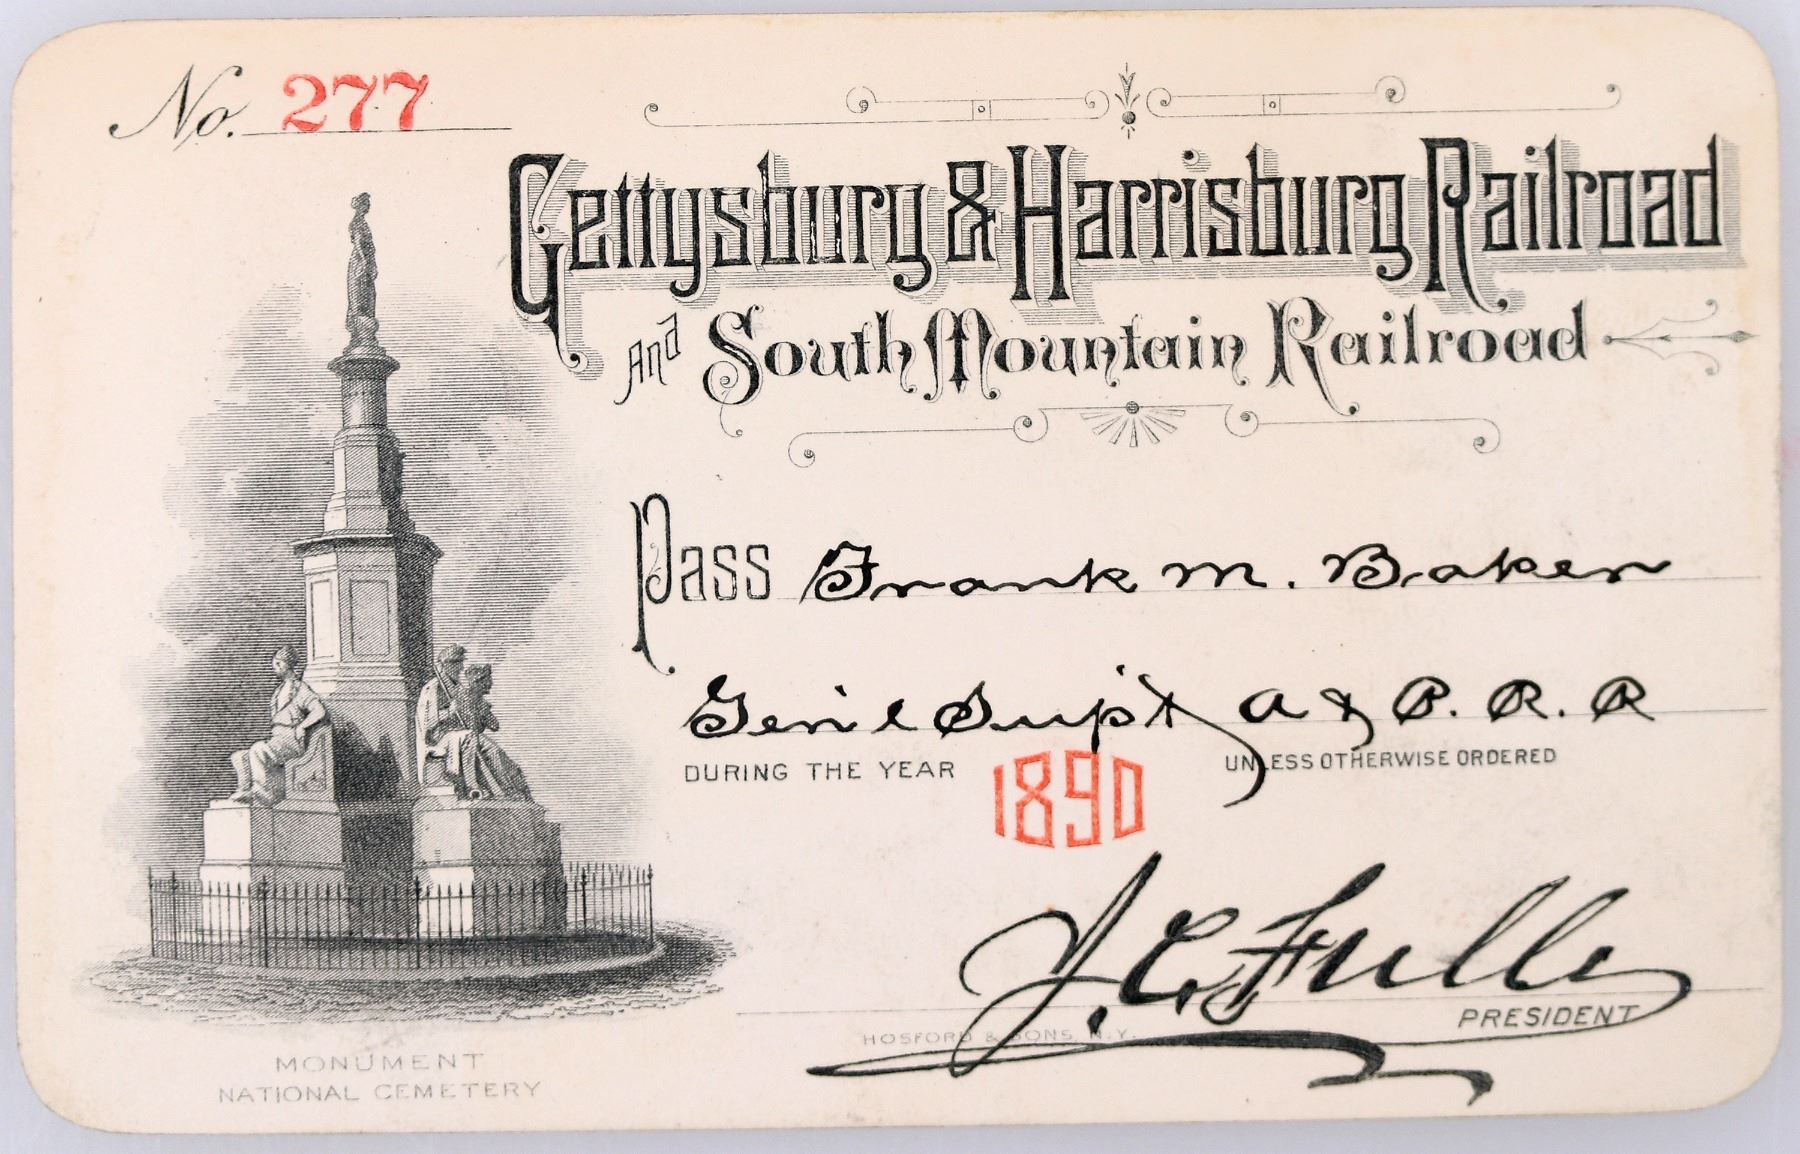 No. 277
Gettysburg & Harrisburg Railroad
And South Mountain Railroad
Pass Frank M. Baker
Gen'l Sup't A & P. R. R
DURING THE YEAR 1890 UNLESS OTHERWISE ORDERED
J. C. Fuller
PRESIDENT
HOSFORD & SONS, N.Y.
MONUMENT
NATIONAL CEMETERY